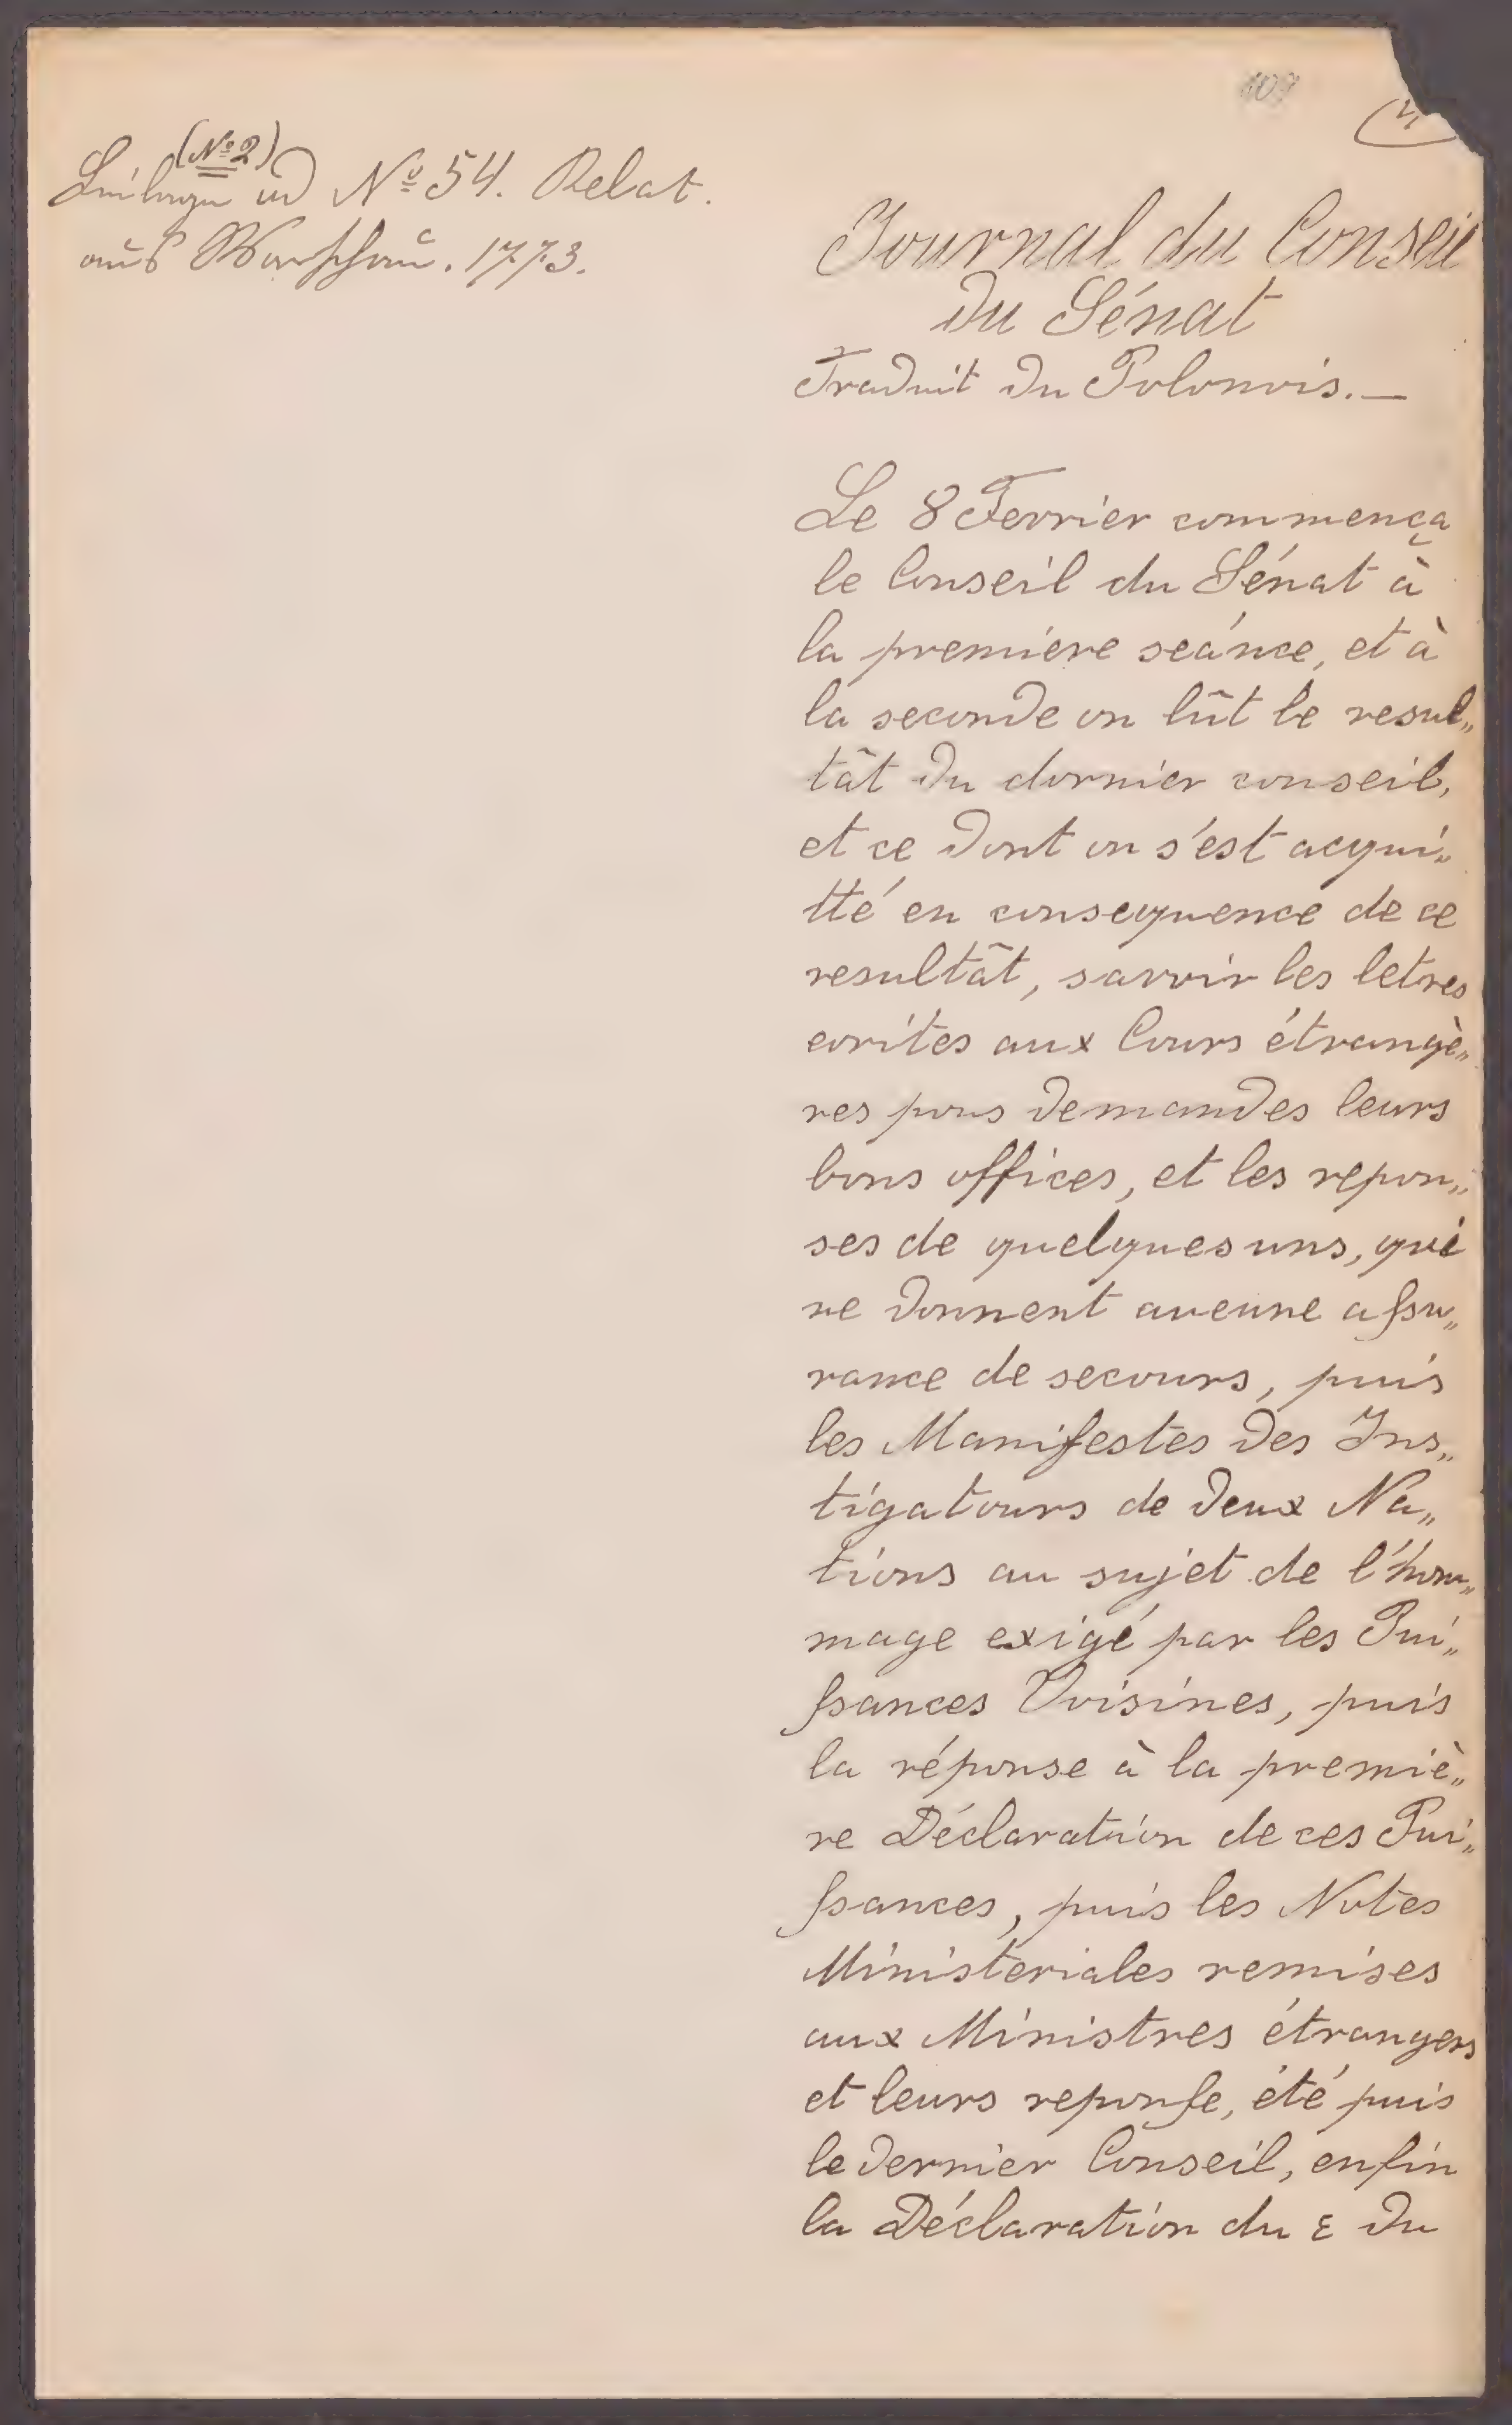 (№ 2)
Beilage ad № 54. Relat.
aus Warschau. 1773.
109
Journal du Conseil
du Sénat
Traduit du Polonois.—
Le 8 Fevrier commença
le Conseil du Sénat à
la premiere seánce, et à
la seconde on lût le resul„
tât du dornier conseil,
et ce dont on s'est acqui„
tté en consequence de ce
resultât, savoir les letres
ecrites aux Cours étrangè„
res pous demandes leurs
bons offices, et les repon„
ses de quelques uns, qui
ne donnent aucune assu„
rance de secours, puis
les Manifestes des Ins„
tigatours de deux Na„
tions au sujet de l'hom„
mage exigé par les Pui„
ssances Voisines, puis
la réponse à la premiè„
re Déclaration de ces Pui„
ssances, puis les Notes
Ministeriales remises
aux Ministres étrangers
et leurs reponse, été puis
le dernier Conseil, enfin
la Déclaration du 2 du